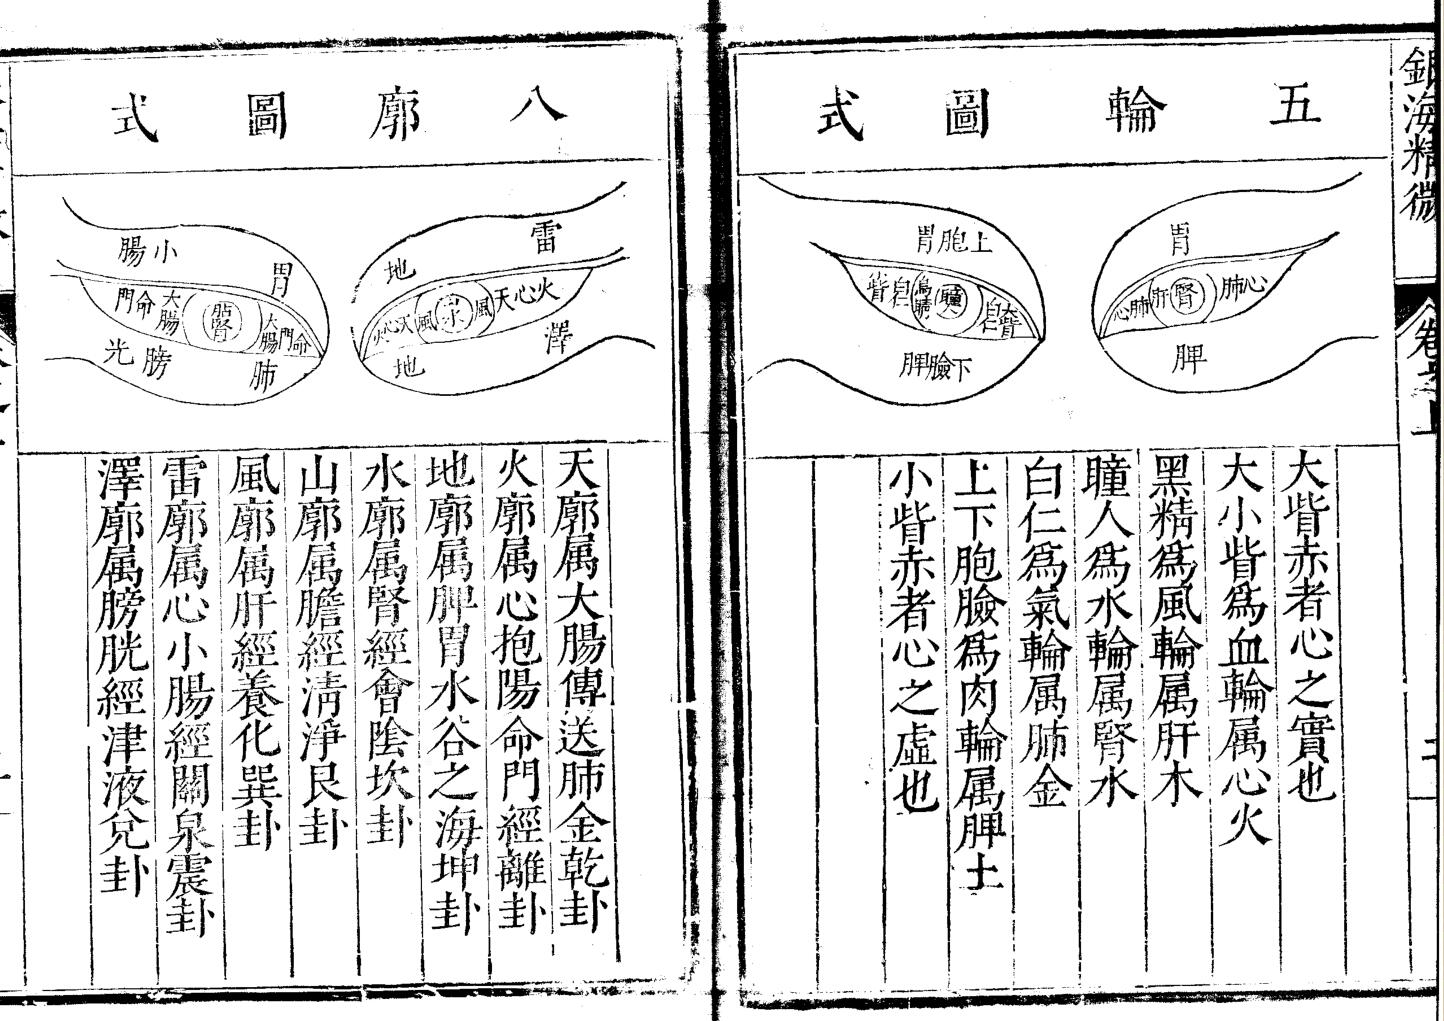 銀海精微
卷之上
五輪圖式
胃
心肺
腎
肝
肺心
脾
上胞胃
大眥
白
瞳
烏睛
白
眥
下臉脾
大眥赤者心之實也
大小眥為血輪属心火
黑精為風輪属肝木
瞳人為水輪属腎水
白仁為氣輪属肺金
上下胞臉為肉輪属脾土
小眥赤者心之虛也
八廓圖式
雷
地
火心天
風
山水
風
天心火
澤
地
胃
小腸
命門
大腸
膽腎
大腸
命門
肺
膀光
天廓属大腸傳送肺金乾卦
火廓属心抱陽命門經離卦
地廓属脾胃水谷之海坤卦
水廓属腎經會陰坎卦
山廓属膽經清淨艮卦
風廓属肝經養化巽卦
雷廓属心小腸經關泉震卦
澤廓属膀胱經津液兌卦